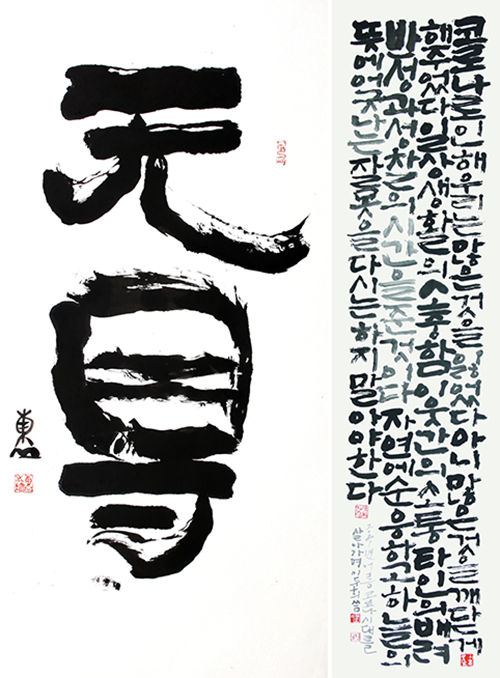 元
東
코로나로인해우리는많은것을잃었다아니많은것을깨닫게
해주었다일상생활의소중함이웃간의소통타인의배려
반성과성찰의시간을준것이다자연에순응하고하늘의
뜻에어긋나는잘못을다시는하지말아야한다
여름코로나시대를
살아가며